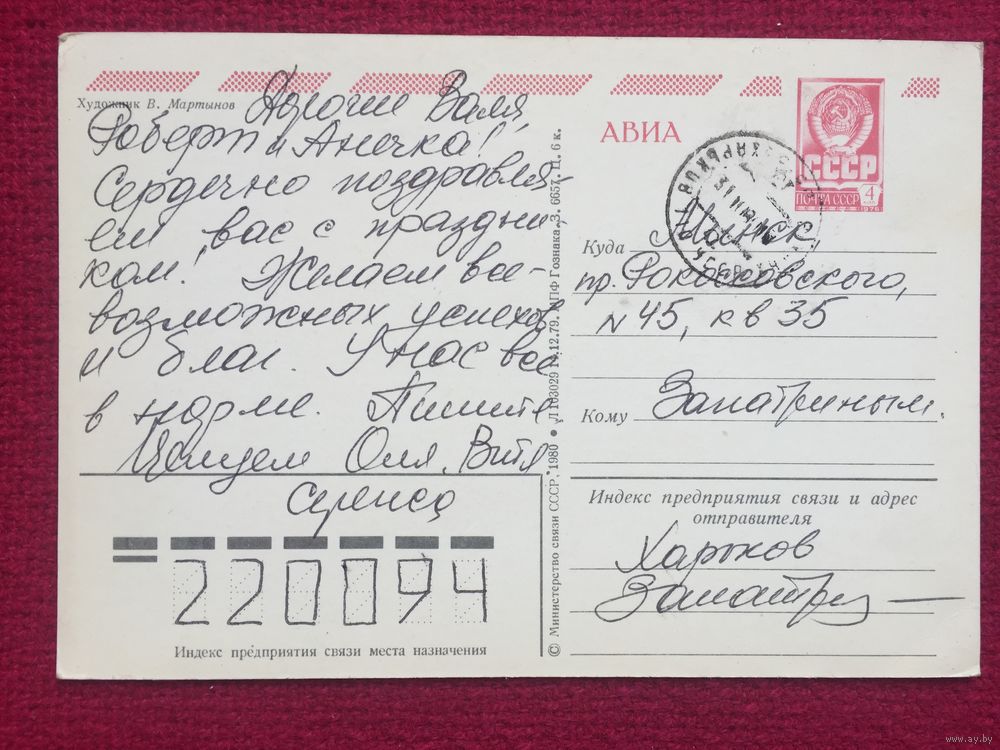 Художник В. Мартынов
Дорогие Валя,
Роберт и Анечка!
Сердечно поздравля-
ем вас с праздни-
ком! Желаем все-
возможных успехов
и благ. У нас все
в норме. Пишите
Целуем Оля, Витя
Сережа
220094
Индекс предприятия связи места назначения
© Министерство связи СССР, 1980 • Л103029 19.12.79. ППФ Гознака. З. 6657. Ц. 6 к.
АВИА
СССР
ПОЧТА СССР 4
1976
ХАРЬКОВ
Куда Минск
пр. Рокоссовского,
N 45, кв 35
Кому Запатриным.
Индекс предприятия связи и адрес
отправителя
Харьков
www.ay.by